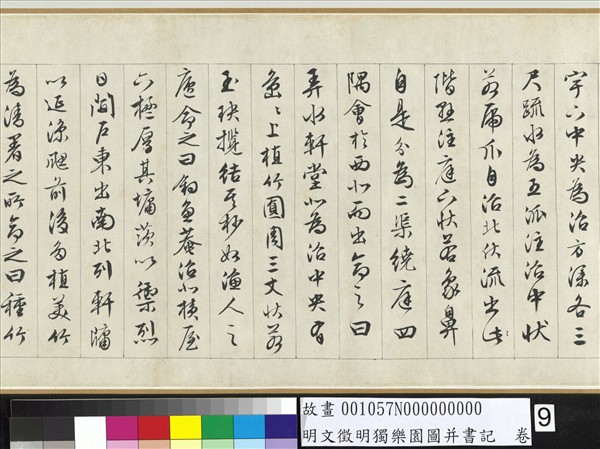 宇下中央為沼方深各三
尺疏水為五派注沼中狀
若虎爪自沼北伏流出北
階懸注庭下狀若象鼻
自是分為二渠繞庭四
隅會於西北而出命之曰
弄水軒堂北為沼中央有
島々上植竹圓周三丈狀若
玉玦攬結其杪如漁人之
廬命之曰釣魚菴沼北橫屋
六楹厚其墉茨以禦烈
日開戶東出南北列軒牖
以延涼颸前後多植美竹
為清暑之所命之曰種竹
故畫 001057N000000000
明文徵明獨樂園圖并書記 卷
9